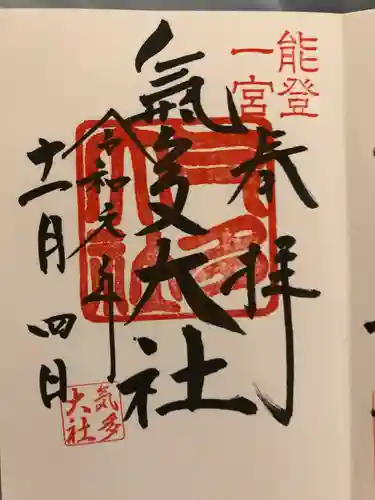 能登
一宮
奉拝
氣多大社
令和元年
十一月四日
気多
大社